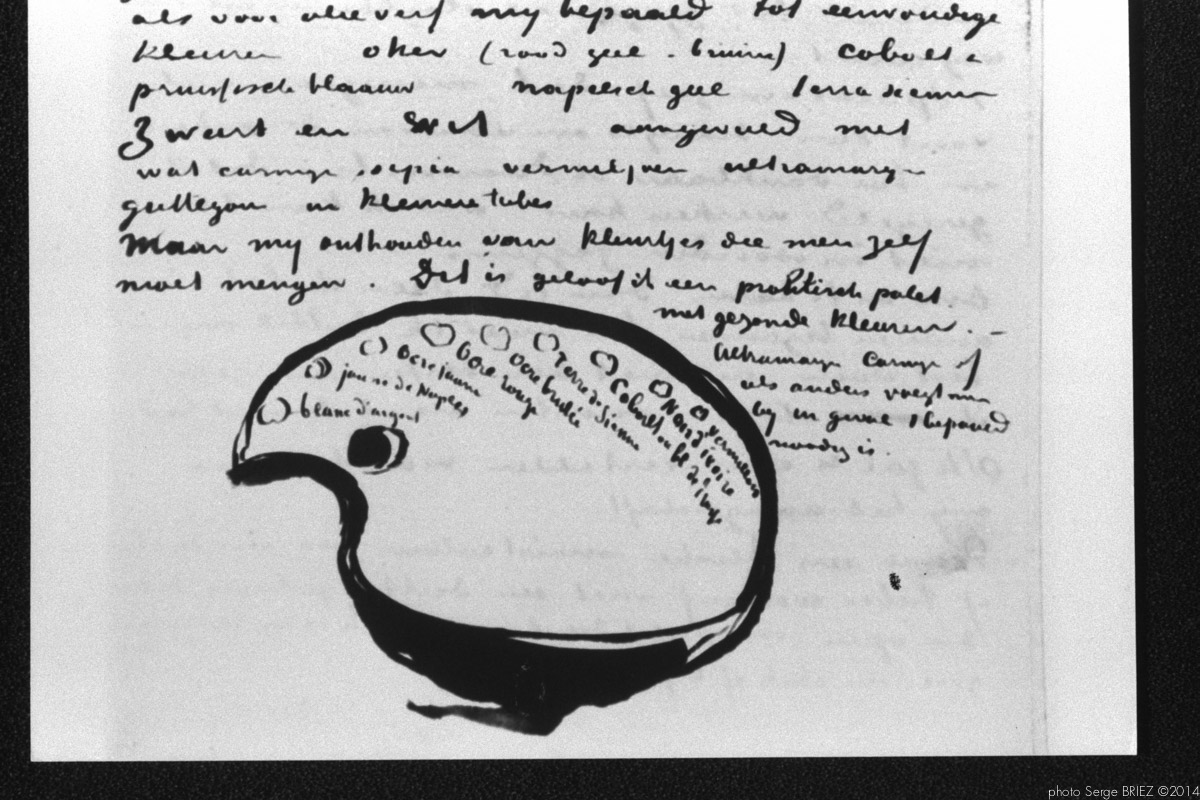 als voor olieverf my bepaald tot eenvoudige
kleuren oker (rood geel . bruin) cobolt &
pruissisch blaauw napelsch geel terra sienna
Zwart en wit aangevuld met
wat carmyn sepia vermiljoen ultramaryn
guttegom in kleinere tubes
Maar my onthouden van kleurtjes die men zelf
moet mengen . Dit is geloof ik een praktisch palet
met gezonde kleuren . –
Ultramaryn Carmyn of
als anders voegt men
by in geval 't bepaald
noodig is.
blanc d'argent
jaune de Naples
ocre jaune
ocre rouge
ocre brulée
Terre de Sienne
Cobalt ou bl de Pruss
Noir d'ivoire
vermillon
photo Serge BRIEZ ©2014